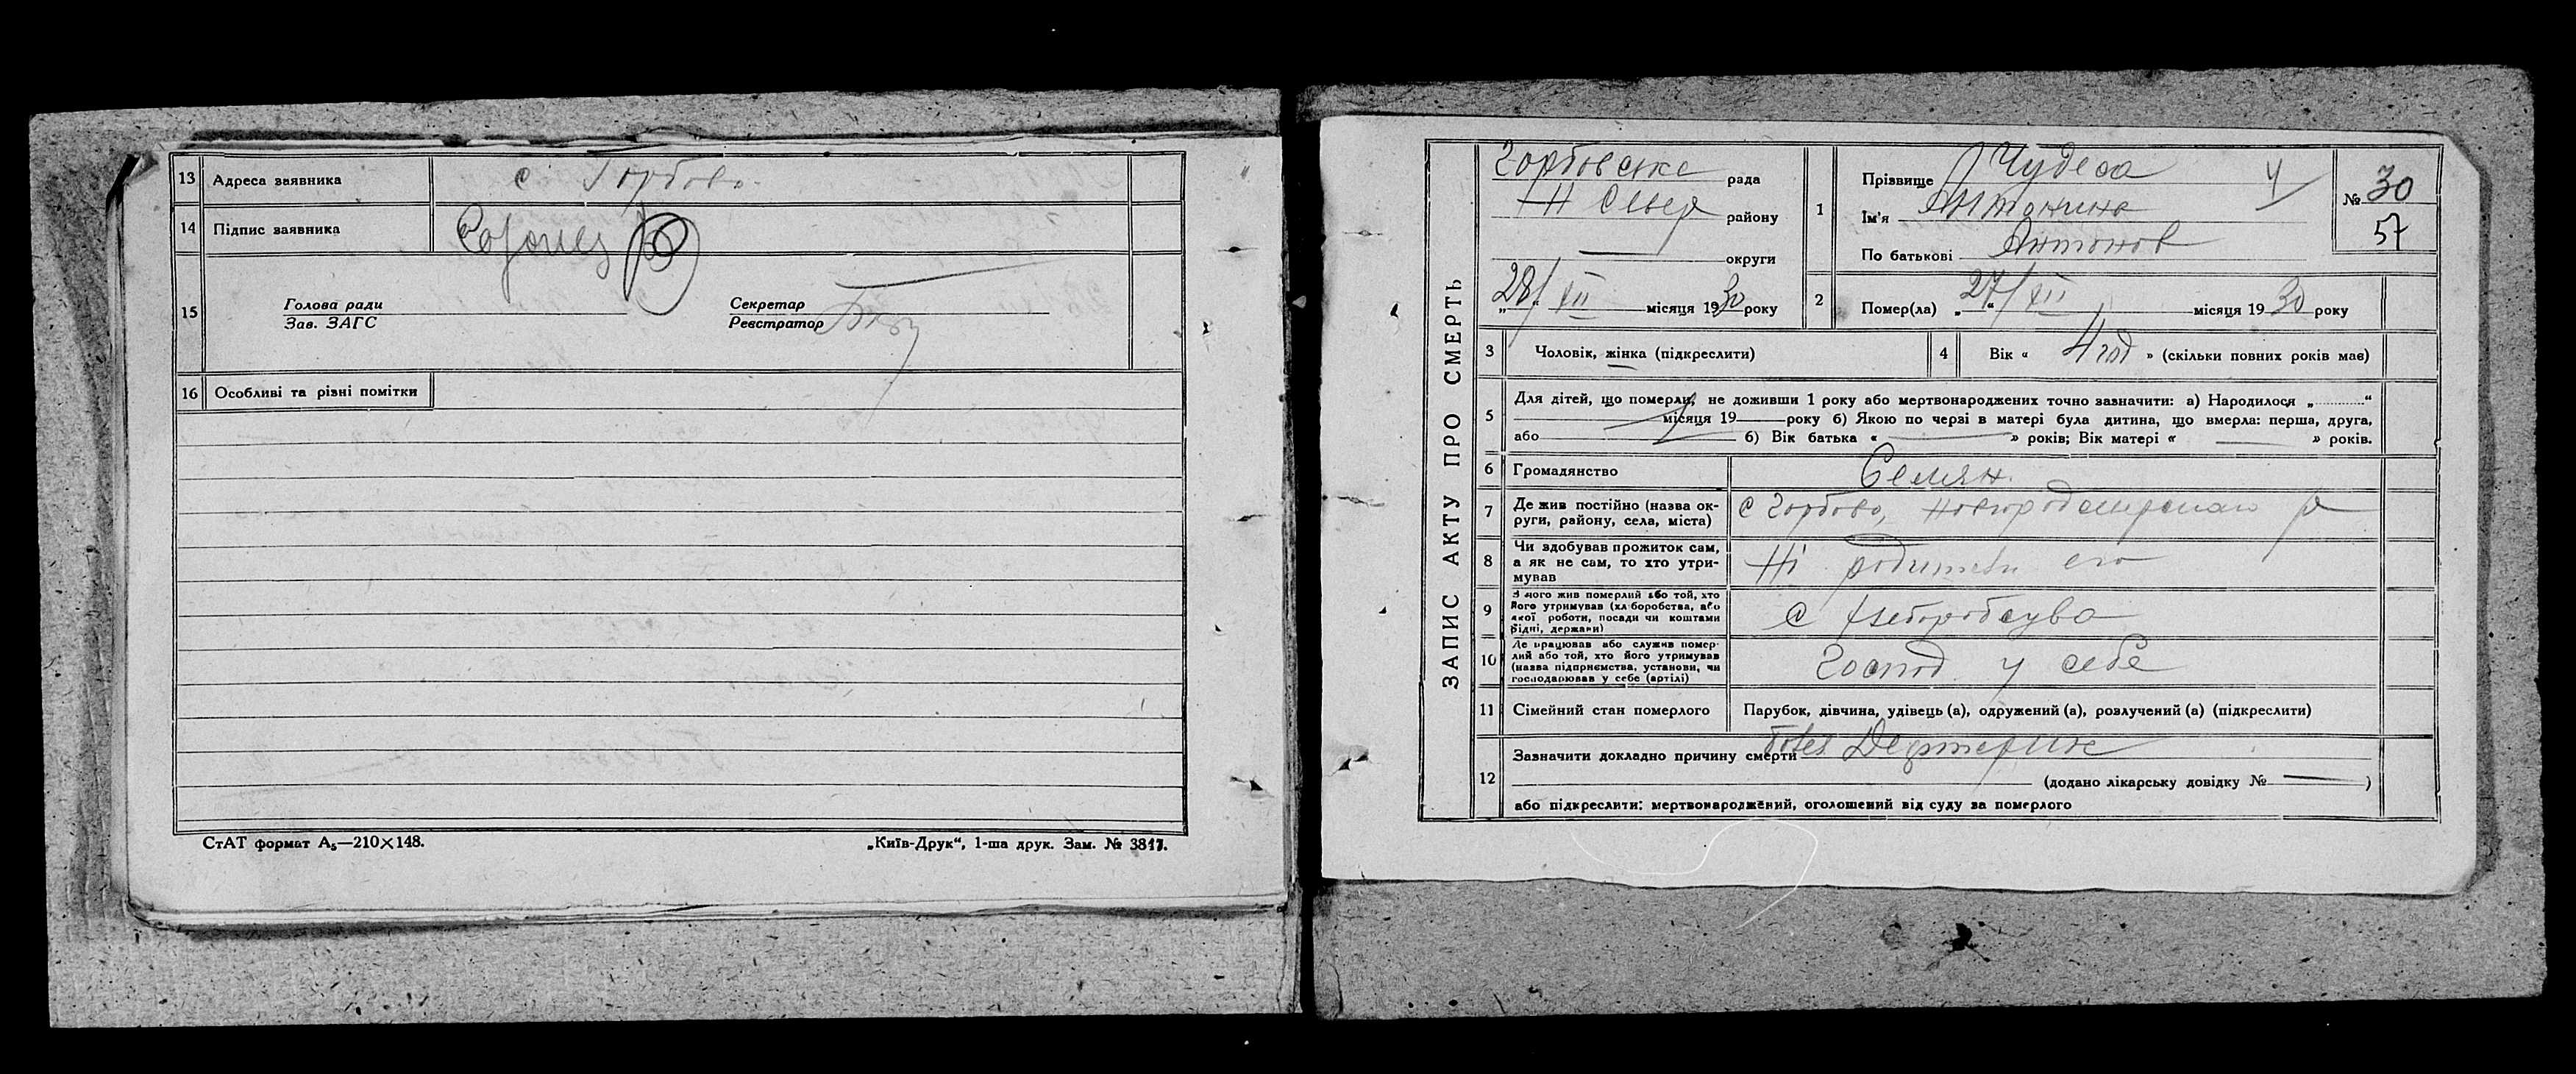 13 Адреса заявника с Горбово.
14 Підпис заявника
15 Голова ради
Зав. ЗАГС
Секретар
Реєстратор
16 Особливі та різні помітки
СтАТ формат А₅—210×148.
„Київ-Друк“, 1-ша друк. Зам. № 3817.
ЗАПИС АКТУ ПРО СМЕРТЬ
Горбовске рада
Н Север району
округи
„28/XII місяця 1930 року
1 Прізвище Чудеса Ч
Ім'я Антонина
По батькові Антонов
№ 30
57
2 Помер(ла) „27/“ XII місяця 1930 року
3 Чоловік, жінка (підкреслити)
4 Вік « 4 год » (скільки повних років має)
5 Для дітей, що померли, не доживши 1 року або мертвонароджених точно зазначити: а) Народилося „..........“
місяця 19 року б) Якою по черзі в матері була дитина, що вмерла: перша, друга,
або б) Вік батька « » років; Вік матері « » років.
6 Громадянство Селян.
7 Де жив постійно (назва ок-
руги, району, села, міста) с Горбово,
8 Чи здобував прожиток сам,
а як не сам, то хто утри-
мував Ні родители его
9 З чого жив померлий або той, хто
його утримував (хліборобства, або
якої роботи, посади чи коштами
рідні, держави) с
10 Де працював або служив помер-
лий або той, хто його утримував
(назва підприємства, установи, чи
господарював у себе (артілі) Господ у себе
11 Сімейний стан померлого Парубок, дівчина, удівець (а), одружений (а), розлучений (а) (підкреслити)
12 Зазначити докладно причину смерти
(додано лікарську довідку № — )
або підкреслити: мертвонароджений, оголошений від суду за померлого